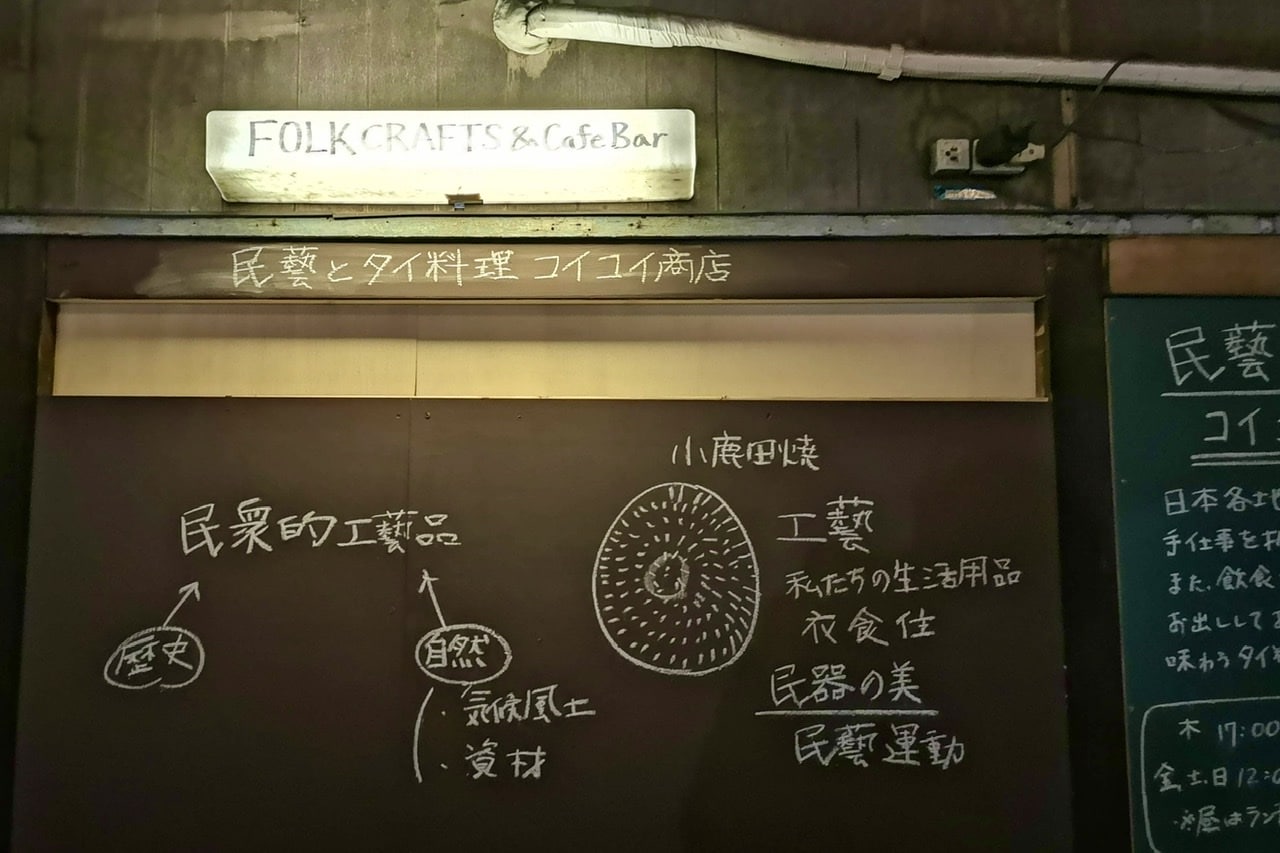 FOLK CRAFTS & Cafe Bar
民藝とタイ料理 コイユイ商店
小鹿田焼
民衆的工藝品
工藝
私たちの生活用品
衣食住
歴史
自然
・気候風土
・資材
民器の美
民藝運動
民藝
コイ
日本各地
手仕事を
また、飲食
お出しして
味わうタイ
木 17:00
金土日 12:0
※昼はラン